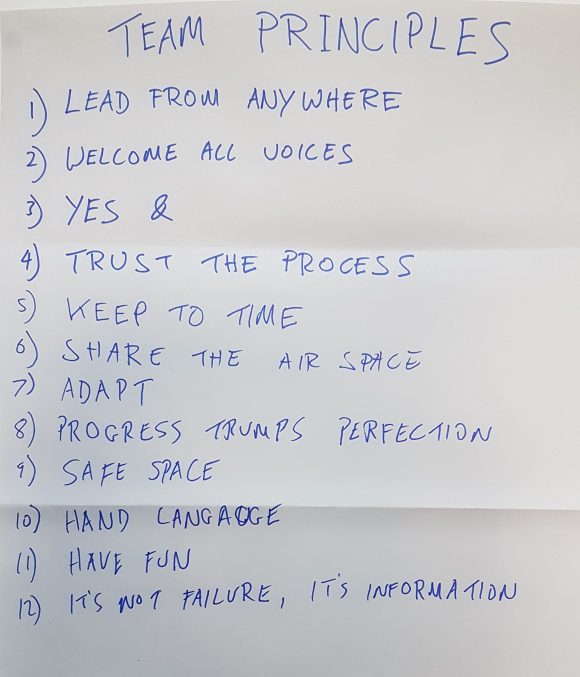 TEAM PRINCIPLES
1) LEAD FROM ANYWHERE
2) WELCOME ALL VOICES
3) YES &
4) TRUST THE PROCESS
5) KEEP TO TIME
6) SHARE THE AIR SPACE
7) ADAPT
8) PROGRESS TRUMPS PERFECTION
9) SAFE SPACE
10) HAND LANGAOGE
11) HAVE FUN
12) IT'S NOT FAILURE, IT'S INFORMATION